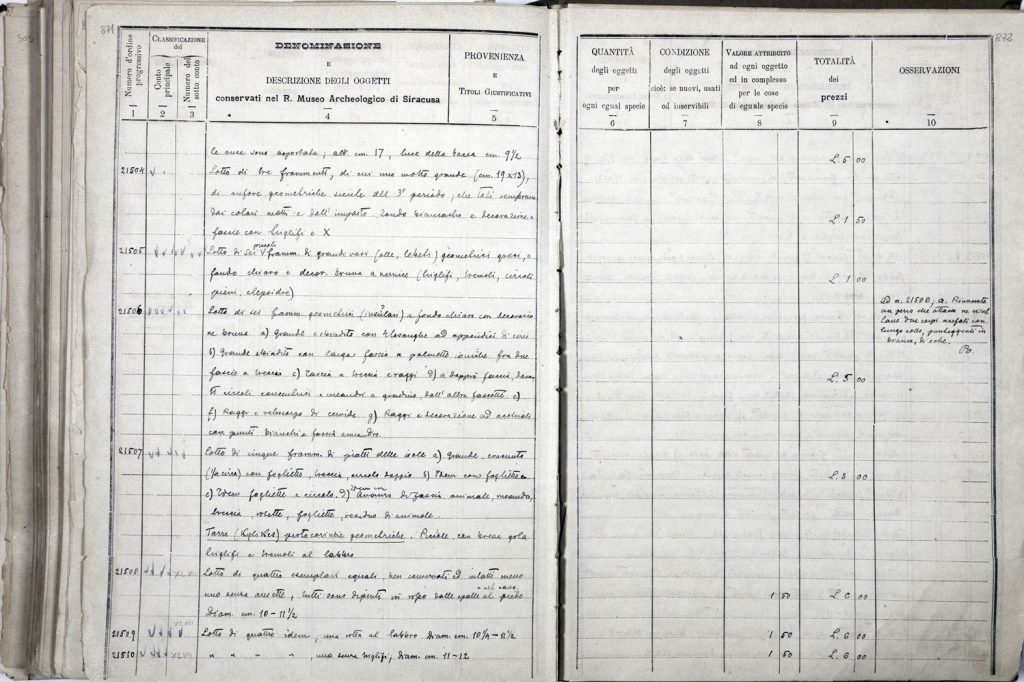 871
Numero d'ordine progressivo
CLASSIFICAZIONE del
Conto principale
Numero del sotto conto
DENOMINAZIONE
E
DESCRIZIONE DEGLI OGGETTI
conservati nel R. Museo Archeologico di Siracusa
PROVENIENZA
E
TITOLI GIUSTIFICATIVI
1 2 3 4 5
le anse sono asportate; alt. cm. 17, luce della bocca cm. 9½
21504 Lotto di tre frammenti, di cui uno molto grande (cm. 19 x 13),
di anfore geometriche sicule del 3° periodo; che tali sembrano
dai colori matti e dall'impasto. Fondo biancastro e decorazione a
fascie con triglifi e X
21505 Lotto di sei piccoli framm. di grandi vasi (olle, lebeti) geometrici greci, a
fondo chiaro e decor. bruna a vernice (triglifi, tremoli, circoli
pieni, clepsidre)
21506 Lotto di sei framm. geometrici (insulari) a fondo chiaro con decorazio
ne bruna. a) Grande
b) Grande con larga fascia a palmette fra due
fascie a treccia c) Fascia a treccia e raggi d) a doppia fascia,
circoli concentrici e meandri a gradino, dall'altra fascette. e)
f) Raggi e di cervide g) Raggi e decorazione ad
con punti bianchi e fascia meandro.
21507 Lotto di cinque framm. di piatti delle isole a) Grande,
con fogliette, treccia, circolo doppio b) Idem con fogliette
c) Idem fogliette e circolo. d) Idem con di fascia animale, meandro,
treccia, rosette, fogliette, residuo di animale.
Tazze (Kylikes) protocorinzie geometriche. Piccole, con breve gola
triglifi e tremoli al labbro
21508 Lotto di quattro esemplari eguali, ben conservati ed intatti meno
uno senza ansette, tutti sono dipinti in rosso dalle spalle al piede
Diam. cm. 10 - 11½
21509 Lotto di quattro idem, una rotta al labbro diam. cm. 10¼ - 11½
21510 " " " ", una senza triglifi; diam. cm. 11-12
872
QUANTITÀ
degli oggetti
per
ogni egual specie
CONDIZIONE
degli oggetti
cioè: se nuovi, usati
od inservibili
VALORE ATTRIBUITO
ad ogni oggetto
ed in complesso
per le cose
di eguale specie
TOTALITÀ
dei
prezzi
OSSERVAZIONI
6 7 8 9 10
L. 5 00
L. 1 50
L. 1 00
Ad n. 21506, a. Rinvenuto
un pezzo che attacca
due corpi acefali con
lungo collo, punteggiati in
bianco, di oche.
L. 5 00
L. 3 00
1 50 L. 6 00
1 50 L. 6 00
1 50 L. 6 00